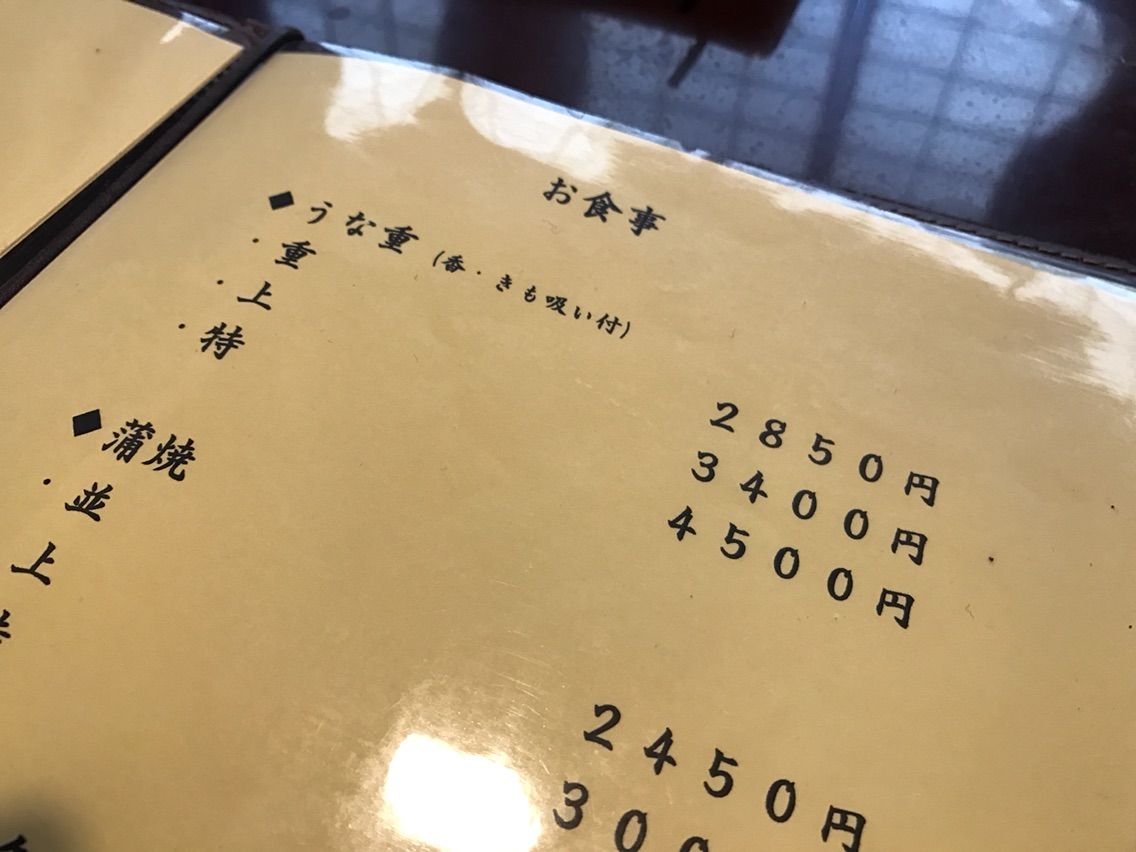 お食事
◆うな重（香・きも吸い付）
・重 2850円
・上 3400円
・特 4500円
◆蒲焼
・並 2450円
上 300